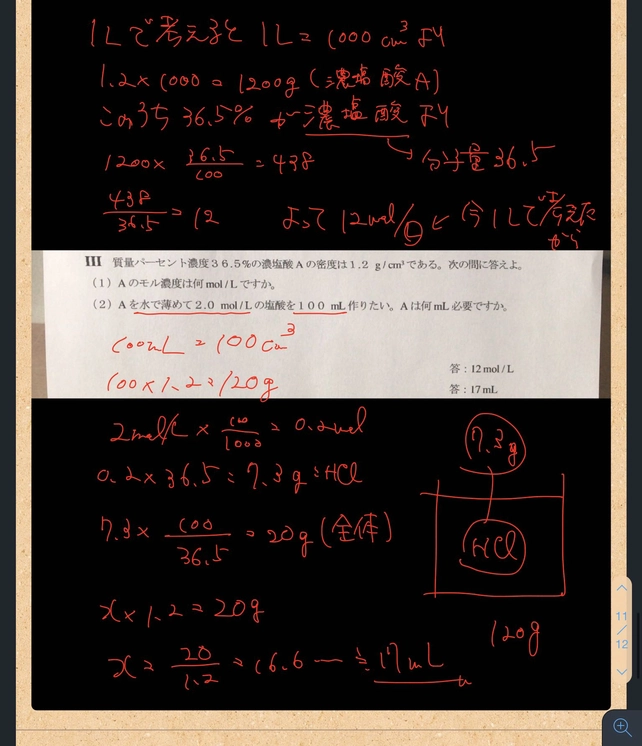 1Lで考えると 1L = 1000 cm³ より
1.2×1000 = 1200g (濃塩酸A)
このうち 36.5% が濃塩酸 より
1200× 36.5/100 = 438
分子量36.5
438/36.5 = 12 よって 12mol/L ← 今1Lで考えた
から
III 質量パーセント濃度36.5%の濃塩酸Aの密度は1.2 g/cm³である。次の問に答えよ。
(1) Aのモル濃度は何mol/Lですか。
(2) Aを水で薄めて2.0 mol/Lの塩酸を100 mL作りたい。Aは何mL必要ですか。
100mL = 100cm³
答:12 mol/L
100×1.2=120g
答:17 mL
2mol/L × 100/1000 = 0.2mol
7.3g
0.2×36.5=7.3g:HCl
7.3× 100/36.5 = 20g(全体)
HCl
x×1.2=20g
120g
x = 20/1.2 = 16.6 ― ≒ 17mL
11
/
12